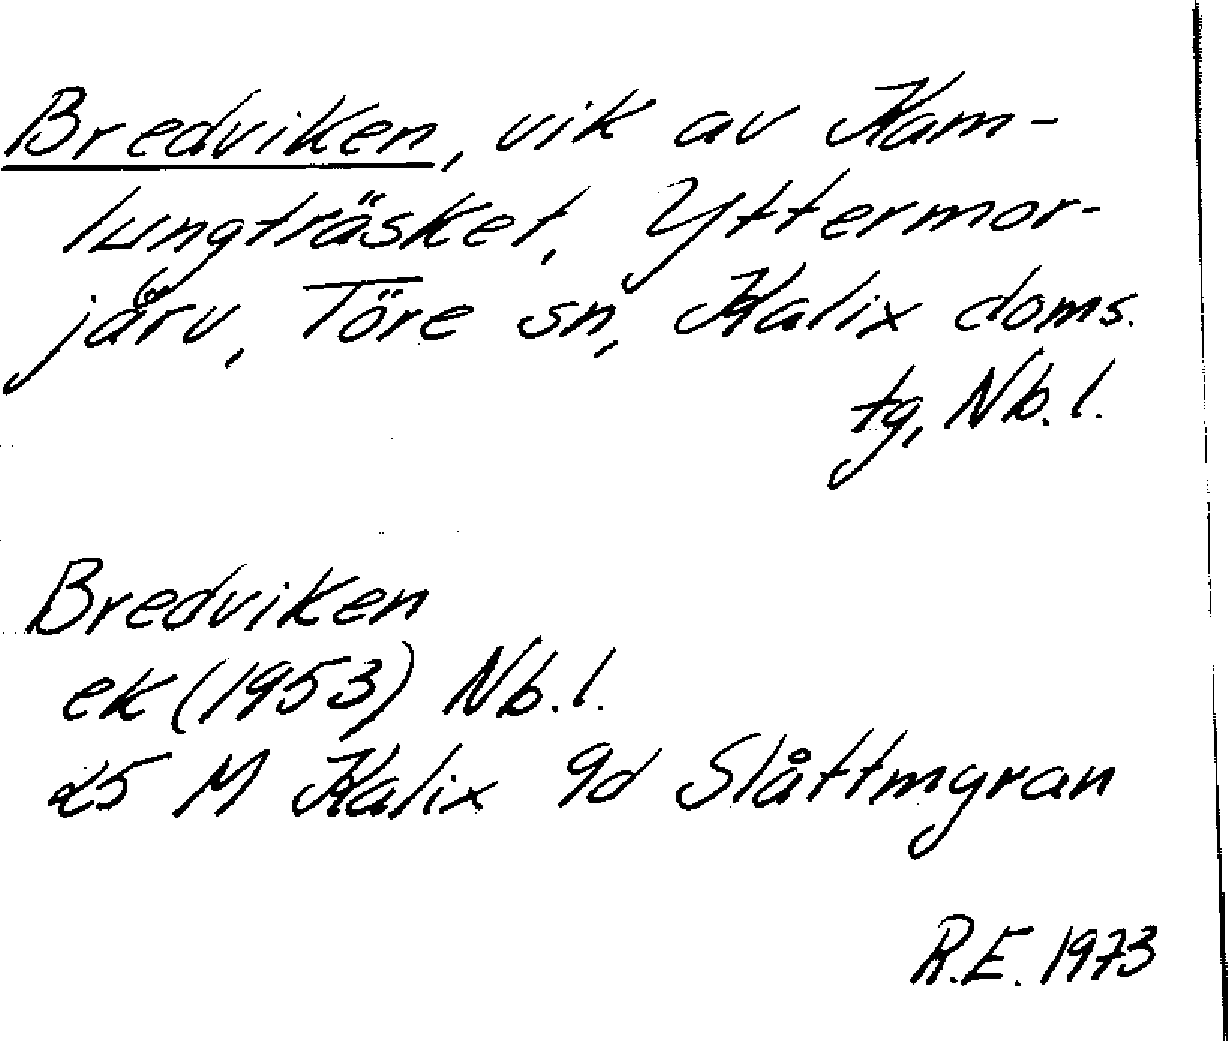 Bredviken, vik av Kam-
lungträsket, Yttermor-
järv, Töre sn, Kalix doms.
tg, Nb. l.
Bredviken
ek (1953) Nb. l.
25 M Kalix 9d Slåttmyran
R.E. 1973